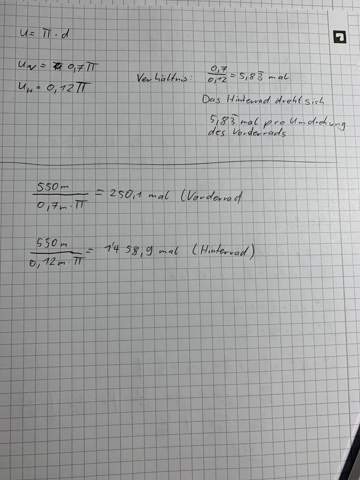 U = π · d
U_V = 0,7π
U_H = 0,12π
Verhältnis: 0,7/0,12 = 5,83̅ mal
Das Hinterrad dreht sich
5,83̅ mal pro Umdrehung
des Vorderrads
550m/0,7m·π = 250,1 mal (Vorderrad
550m/0,12m·π = 1458,9 mal (Hinterrad)